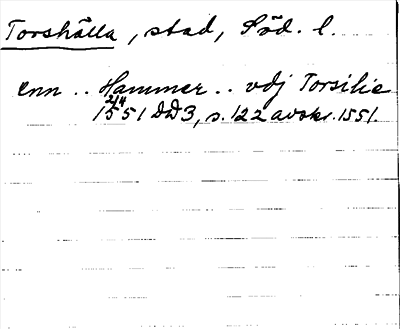 Torshälla, stad, Söd. l.
enn .. Hammer .. vdj Torsilie
2/4
1551 DD3, s. 122 avskr. 1551